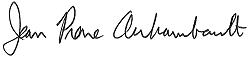 Jean Pierre Archambault